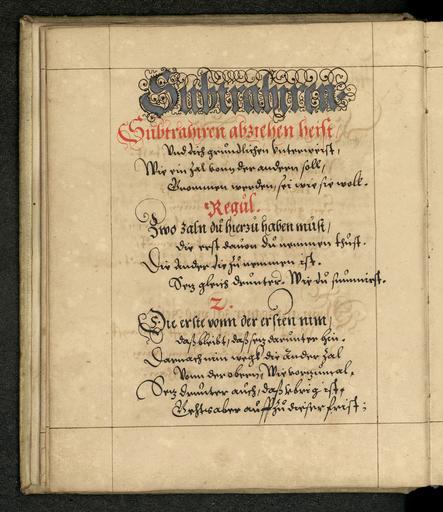 Subtrahiren.
Subtrahiren abziehen heist,
Und dich gründlichen unterweist,
Wie ein zal vonn der andern soll,
Genommen werden, sei wie sie woll.
Regul.
Zwo zaln du hierzu haben must,
die erst dauon du nemmen thust.
Die ander die zu nemmen ist.
Setz gleich drunter. Wie du summirst.
2.
Die erste vonn der ersten nim,
daß bleibt, daß setz darunter hin.
Darnach nim wegk die ander zal
Vonn der obern, Wie vorzumal.
Setz drunter auch, daß vbrig ist,
Gehts aber auff zu dieser frist: